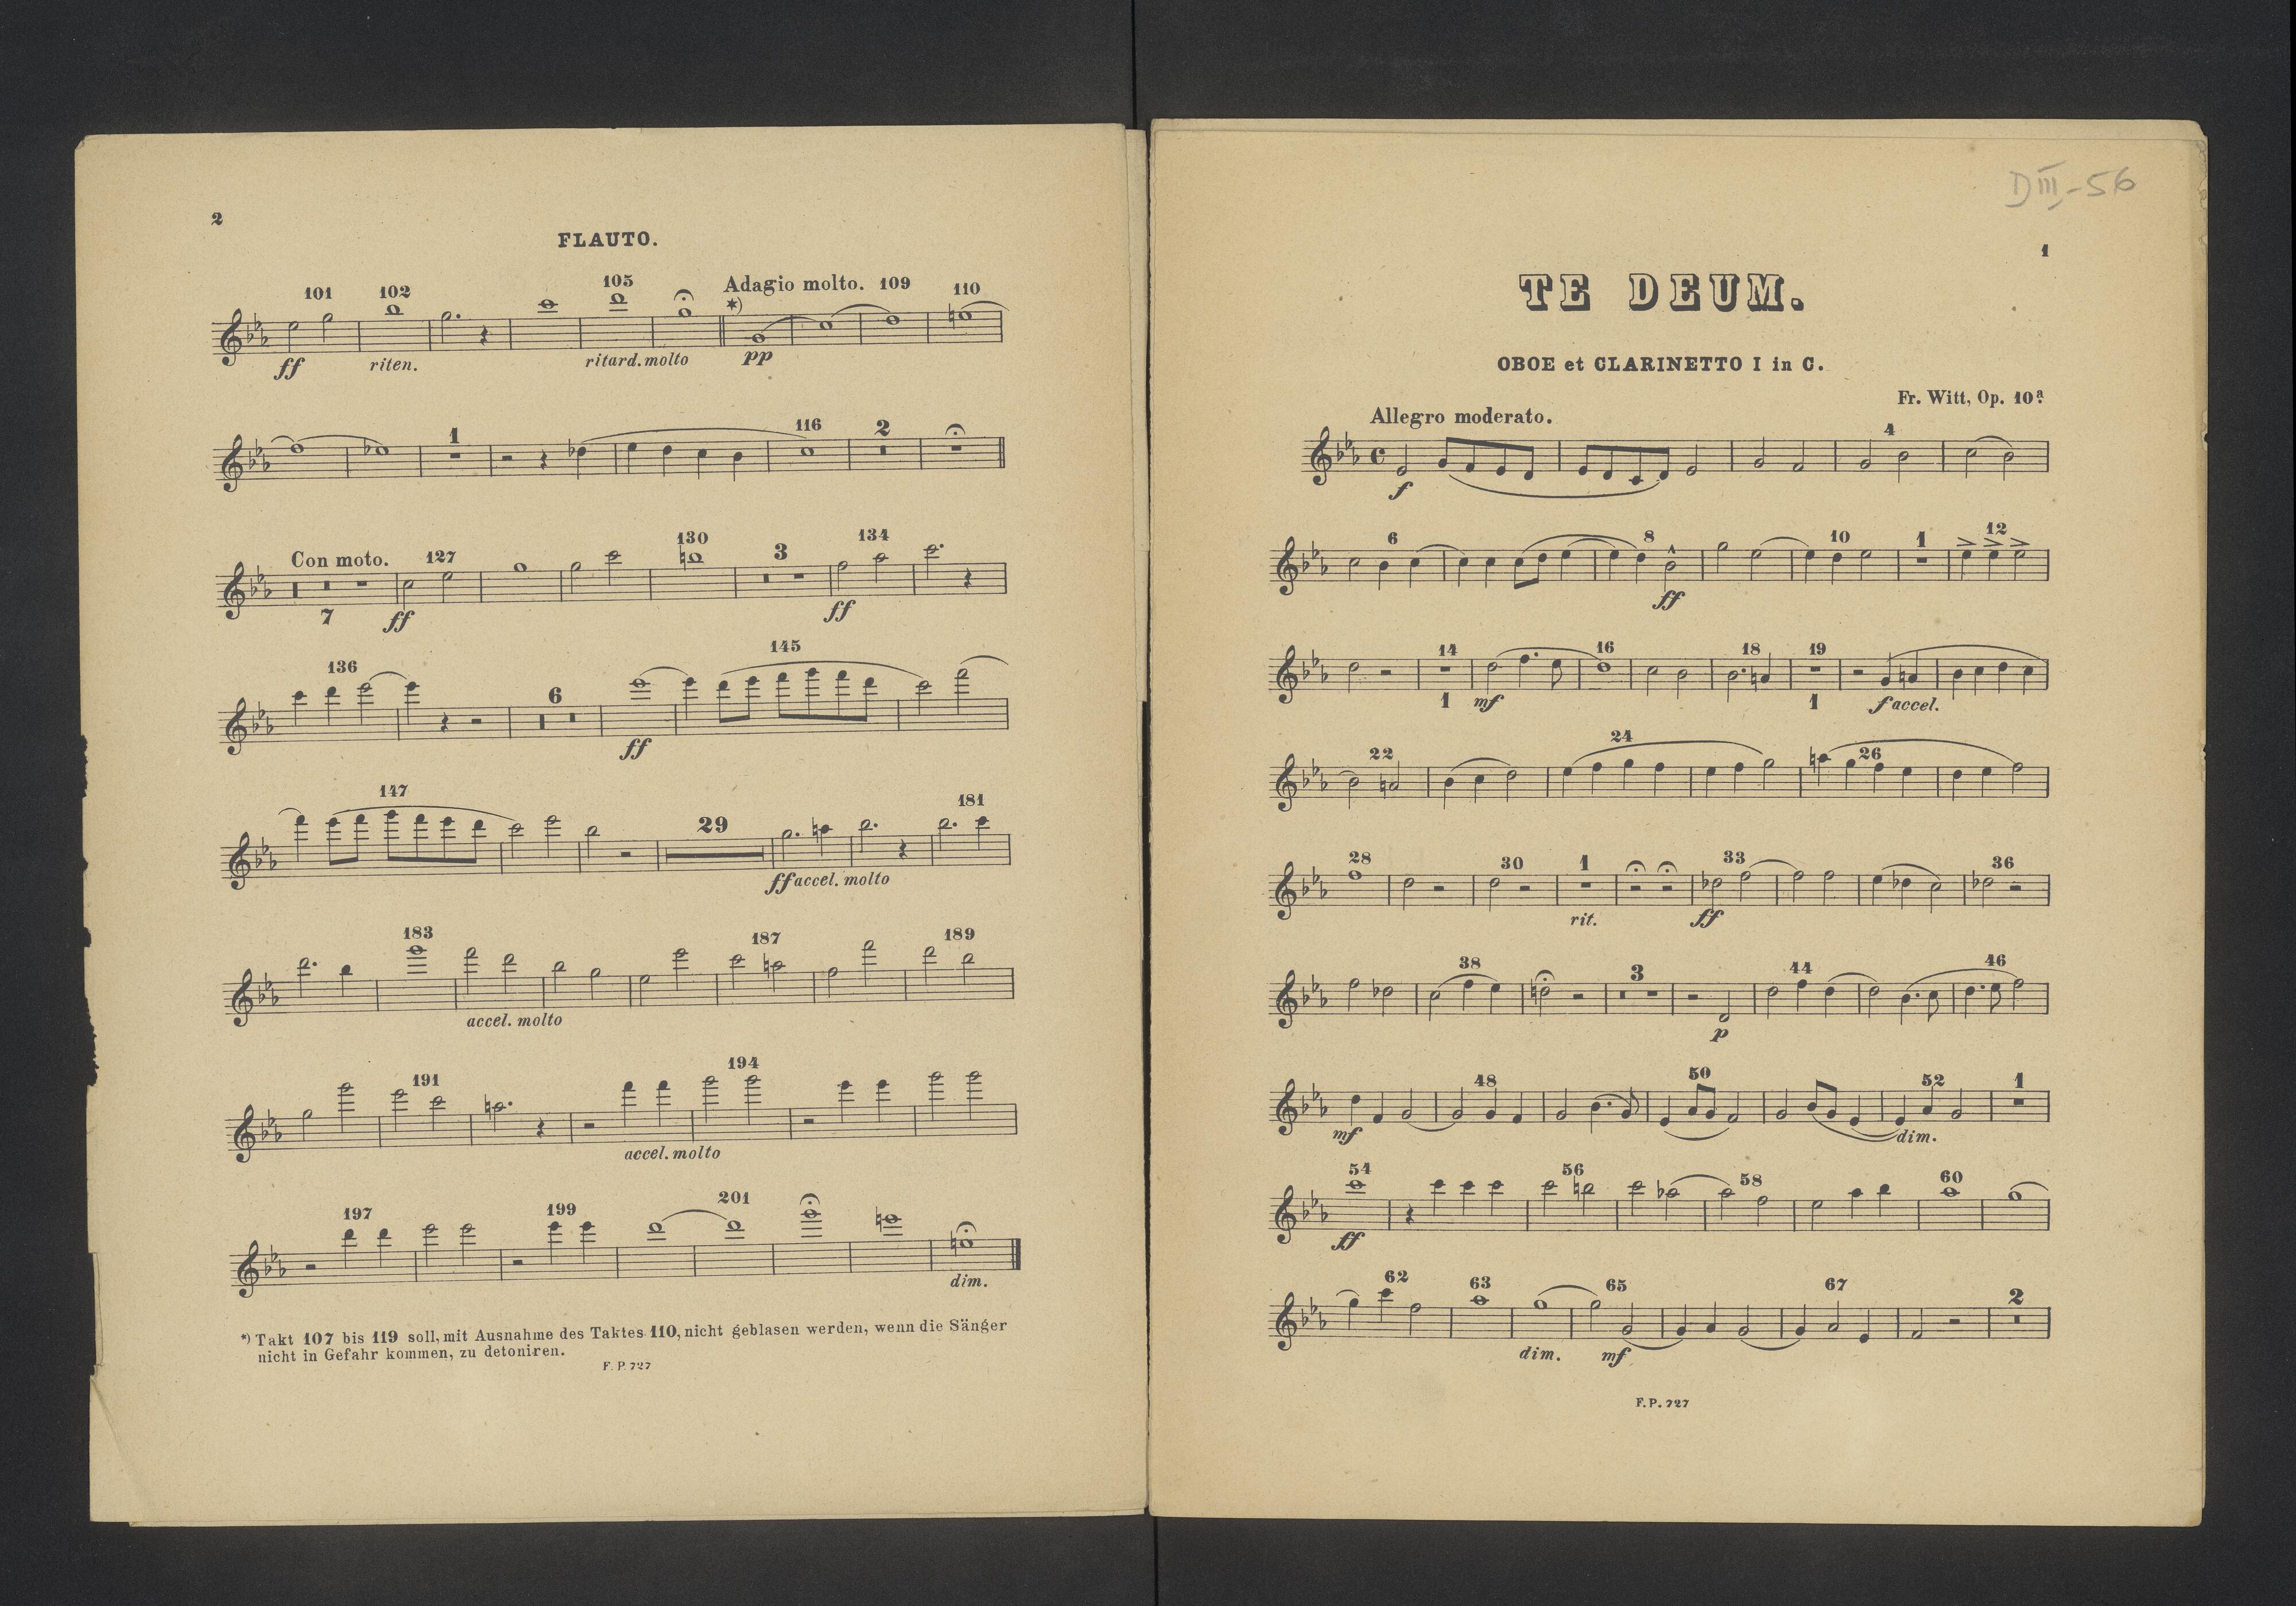 2
FLAUTO.
101 102 105 Adagio molto. 109 110
*)
ff riten. ritard. molto pp
1 116 2
Con moto. 127 130 3 134
7 ff ff
136 6 145
ff
147 29 181
ff accel. molto
183 187 189
accel. molto
191 194
accel. molto
197 199 201
dim.
*) Takt 107 bis 119 soll, mit Ausnahme des Taktes 110, nicht geblasen werden, wenn die Sänger
nicht in Gefahr kommen, zu detoniren.
F. P. 727
D III - 56
1
TE DEUM.
OBOE et CLARINETTO I in C.
Fr. Witt, Op. 10ª.
Allegro moderato.
4
f
6 8 10 1 12
ff
14 16 18 19
1 mf 1 f accel.
22 24 26
28 30 1 33 36
rit. ff
38 3 44 46
p
48 50 52 1
mf dim.
54 56 58 60
ff
62 63 65 67 2
dim. mf
F. P. 727